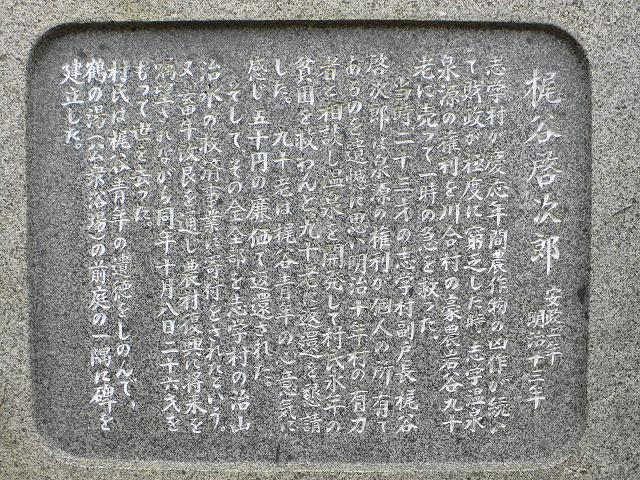 梶谷啓次郎 安政二年
明治十三年
志学村が慶応年間農作物の凶作が続い
て財政が極度に窮乏した時志学温泉
泉源の権利を川合村の豪農岩谷九十
老に売って一時の急を救った
当時二十三才の志学村副戸長梶谷
啓次郎は泉源の権利が個人の所有で
あるのを遺憾に思い明治十年村の有力
者と相談し温泉を開発して村民永年の
貧困を救わんと九十老に返還を懇請
した。九十老は梶谷青年の心意気に
感じ五千円の廉価で返還された。
そしてその金全部を志学村の治山
治水の救済事業に寄付をされたという。
又畜牛改良を通じ農村復興に将来を
嘱望されながら同年十月八日二十六才を
もって世を去った。
村民は梶谷青年の遺徳をしのんで、
鶴の湯(公衆浴場)の前庭の一隅に碑を
建立した。